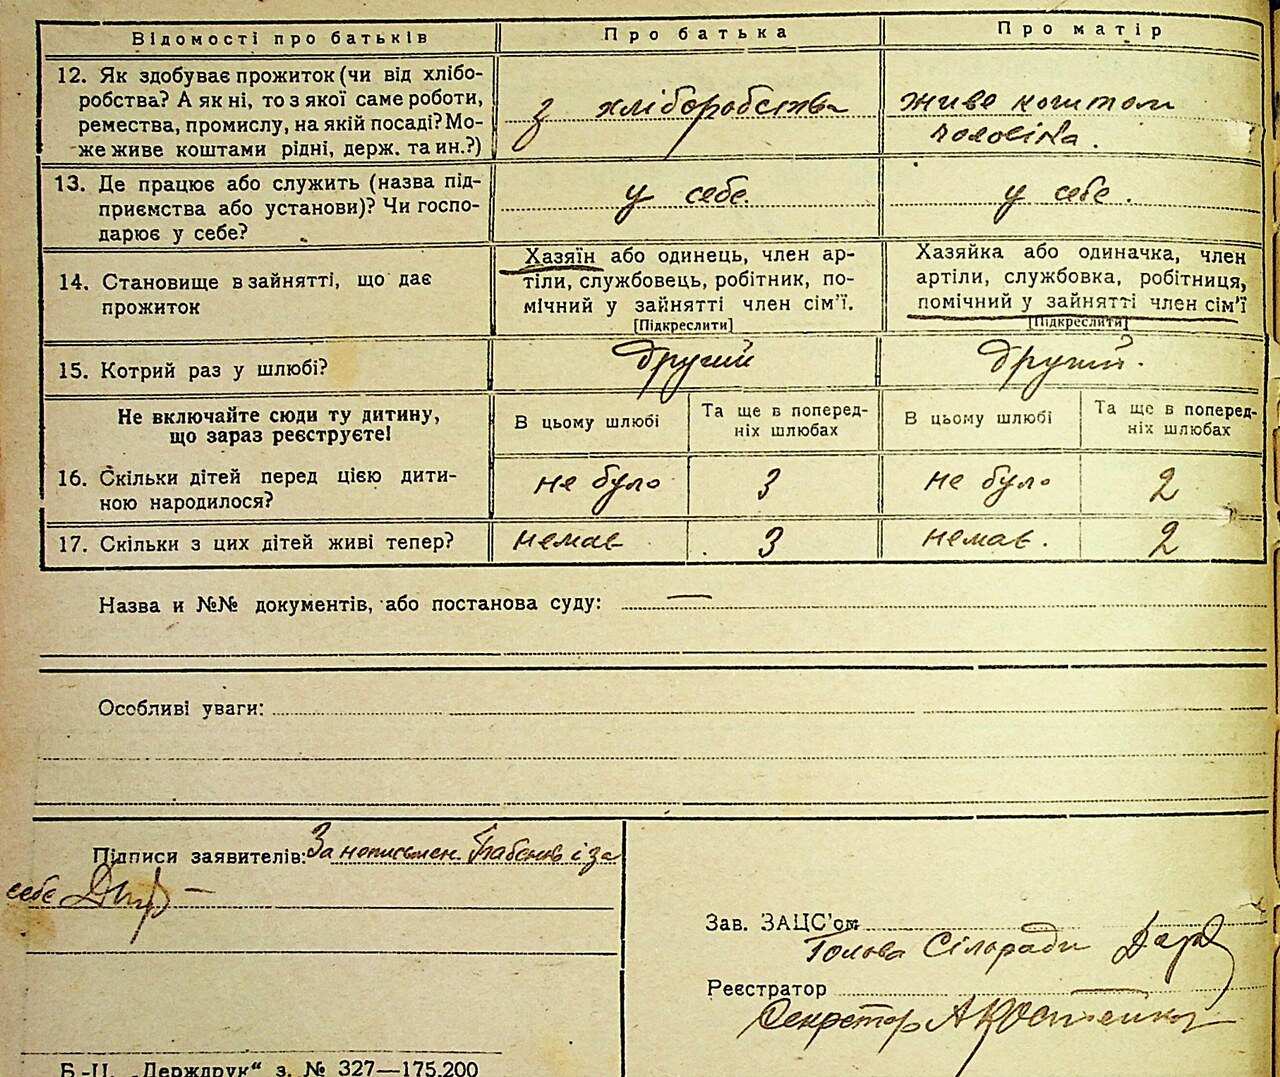 Відомості про батьків
Про батька
Про матір
12. Як здобуває прожиток (чи від хлібо-
робства? А як ні, то з якої саме роботи,
ремества, промислу, на якій посаді? Мо-
же живе коштами рідні, держ. та ин.?)
з хліборобства
живе коштом
чоловіка.
13. Де працює або служить (назва під-
приємства або установи)? Чи госпо-
дарює у себе?
у себе.
у себе.
14. Становище в зайнятті, що дає
прожиток
Хазяїн або одинець, член ар-
тіли, службовець, робітник, по-
мічний у зайнятті член сім'ї.
[Підкреслити]
Хазяйка або одиначка, член
артіли, службовка, робітниця,
помічний у зайнятті член сім'ї
[Підкреслити]
15. Котрий раз у шлюбі?
другий
другий.
Не включайте сюди ту дитину,
що зараз реєструєте!
В цьому шлюбі
Та ще в поперед-
ніх шлюбах
В цьому шлюбі
Та ще в поперед-
ніх шлюбах
16. Скільки дітей перед цією дити-
ною народилося?
не було
3
не було
2
17. Скільки з цих дітей живі тепер?
немає
3
немає.
2
Назва и №№ документів, або постанова суду: —
Особливі уваги:
Підписи заявителів: За неписьмен. і за
себе
Зав. ЗАЦС'ом
Голова Сілоради
Реєстратор
Секретар А Костенко
Б-Ц. „Держдрук" з. № 327—175.200